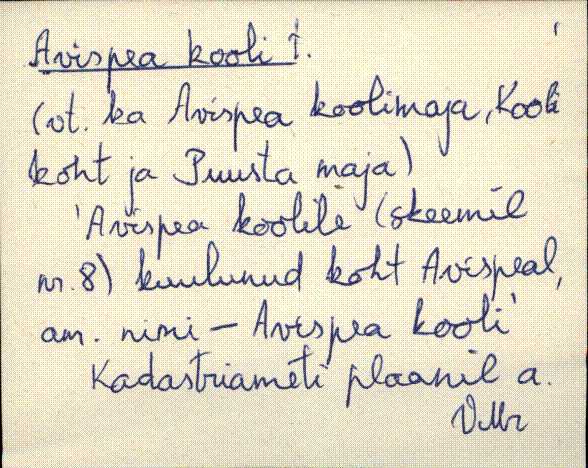 Avispea kooli 1.
(vt. ka Avispea koolimaja, Kooli
koht ja Puusta maja)
'Avispea koolile (skeemil
nr. 8) kuulunud koht Avispeal,
am. nimi – Avispea kooli'
Kadastriameti plaanil a.
VMr